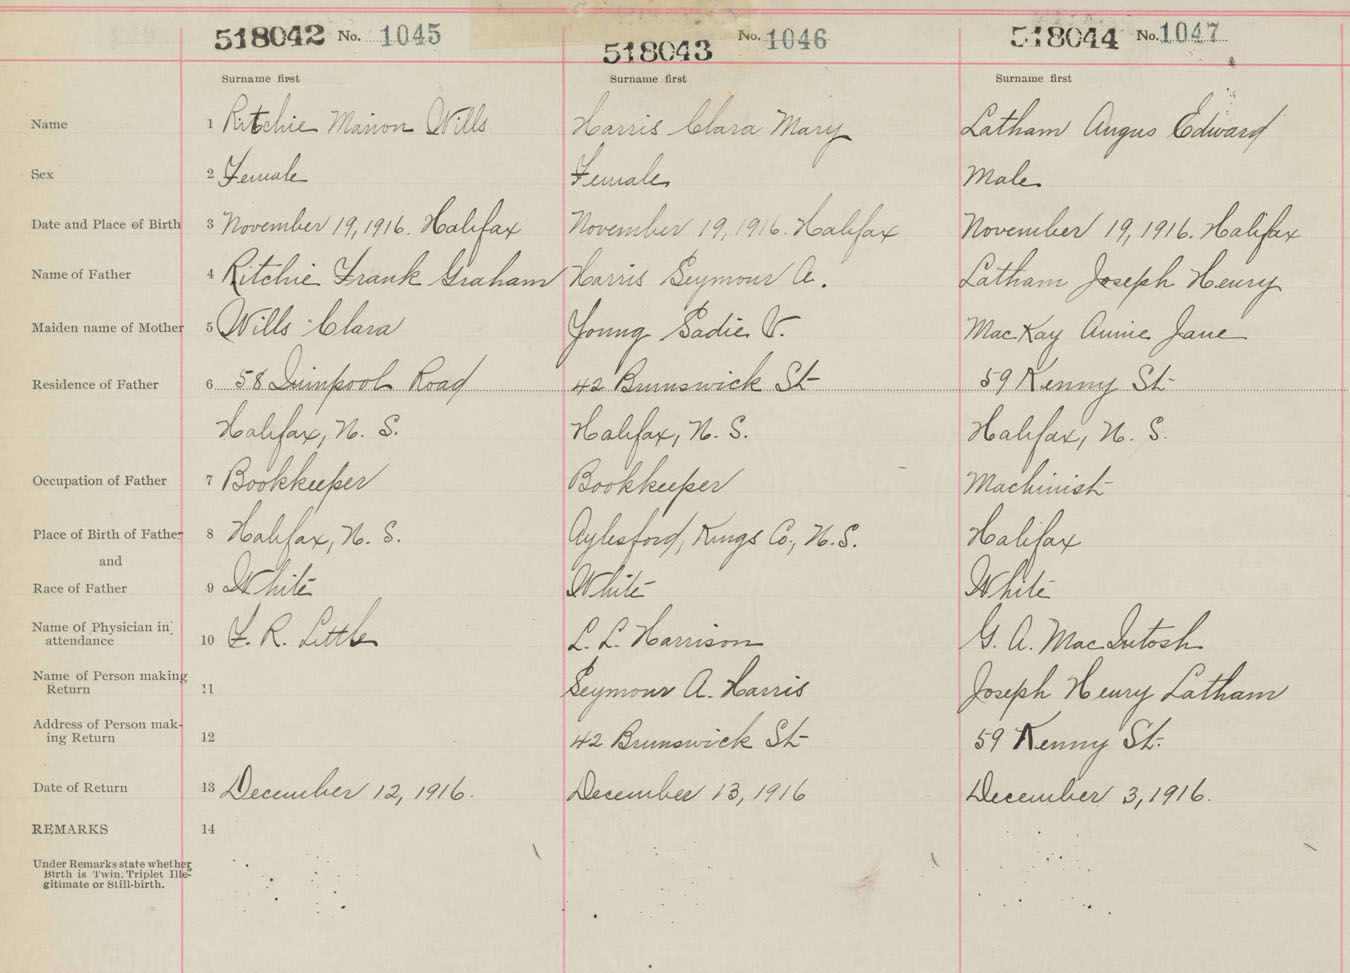 518042 No. 1045 518043 No. 1046 518044 No. 1047
Surname first Surname first Surname first
Name 1 Ritchie Marion Wills Harris Clara Mary Latham Angus Edward
Sex 2 Female Female Male
Date and Place of Birth 3 November 19, 1916. Halifax November 19, 1916. Halifax November 19, 1916. Halifax
Name of Father 4 Ritchie Frank Graham Harris Seymour A. Latham Joseph Henry
Maiden name of Mother 5 Wills Clara Young Sadie V. MacKay Annie Jane
Residence of Father 6 58 Quinpool Road 42 Brunswick St 59 Kenny St
Halifax, N. S. Halifax, N. S. Halifax, N. S.
Occupation of Father 7 Bookkeeper Bookkeeper Machinist
Place of Birth of Father 8 Halifax, N. S. Aylesford, Kings Co., N.S. Halifax
and
Race of Father 9 White White White
Name of Physician in
attendance 10 F. R. Little L. L. Harrison G. A. MacIntosh
Name of Person making
Return 11 Seymour A. Harris Joseph Henry Latham
Address of Person mak-
ing Return 12 42 Brunswick St 59 Kenny St.
Date of Return 13 December 12, 1916. December 13, 1916 December 3, 1916.
REMARKS 14
Under Remarks state whether
Birth is Twin, Triplet Ille-
gitimate or Still-birth.